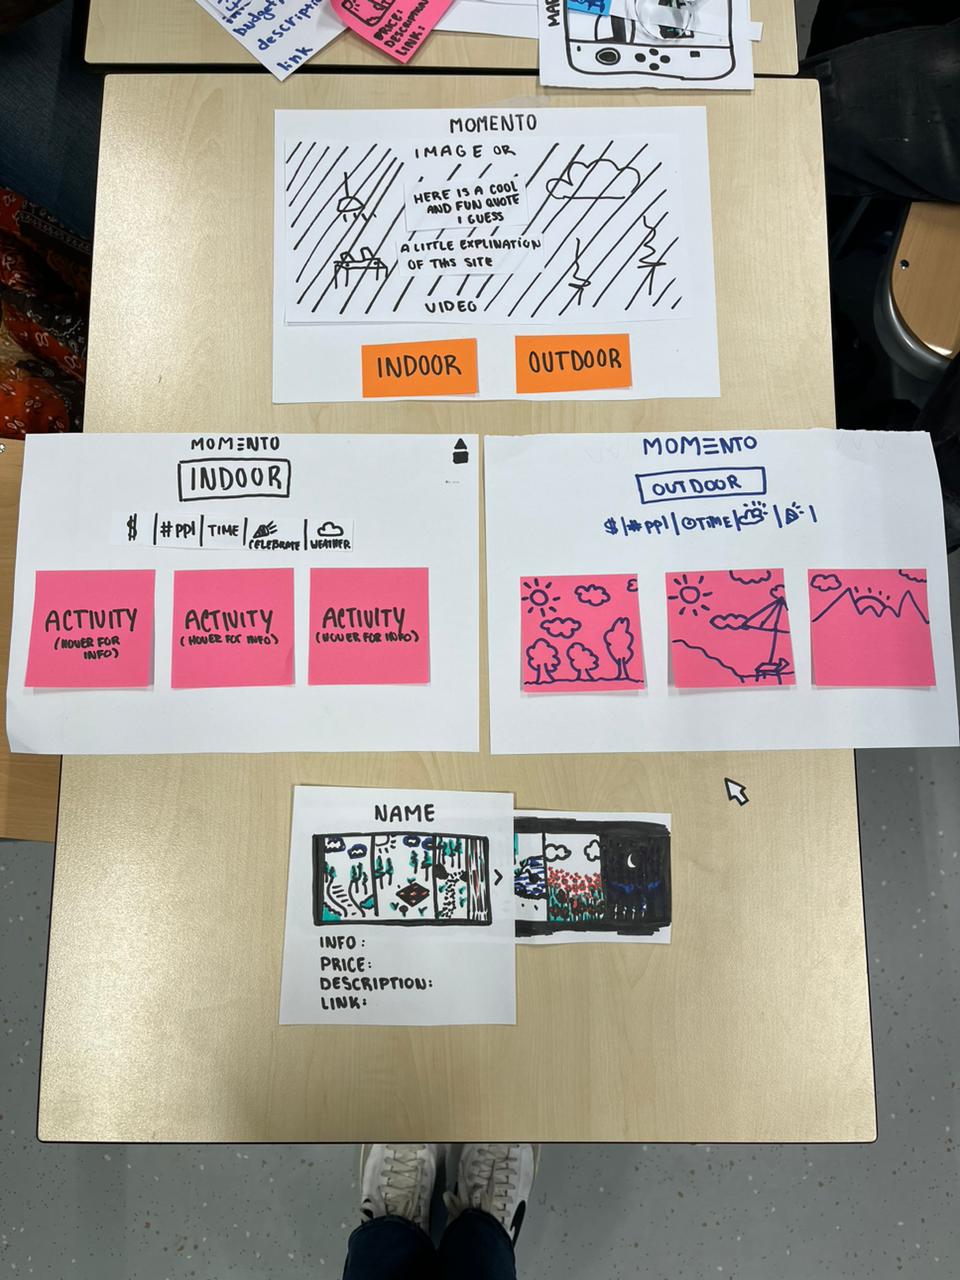 budget
description
link
PRICE:
DESCRIPTION:
LINK:
MOMENTO
IMAGE OR
HERE IS A COOL
AND FUN QUOTE
I GUESS
A LITTLE EXPLINATION
OF THIS SITE
VIDEO
INDOOR
OUTDOOR
MOMENTO
INDOOR
$ | #PPL | TIME | CELEBRATE | WEATHER
ACTIVITY
(HOVER FOR
INFO)
ACTIVITY
(HOVER FOR INFO)
ACTIVITY
(HOVER FOR INFO)
MOMENTO
OUTDOOR
$ | #PPL | TIME | | |
NAME
>
INFO:
PRICE:
DESCRIPTION:
LINK: